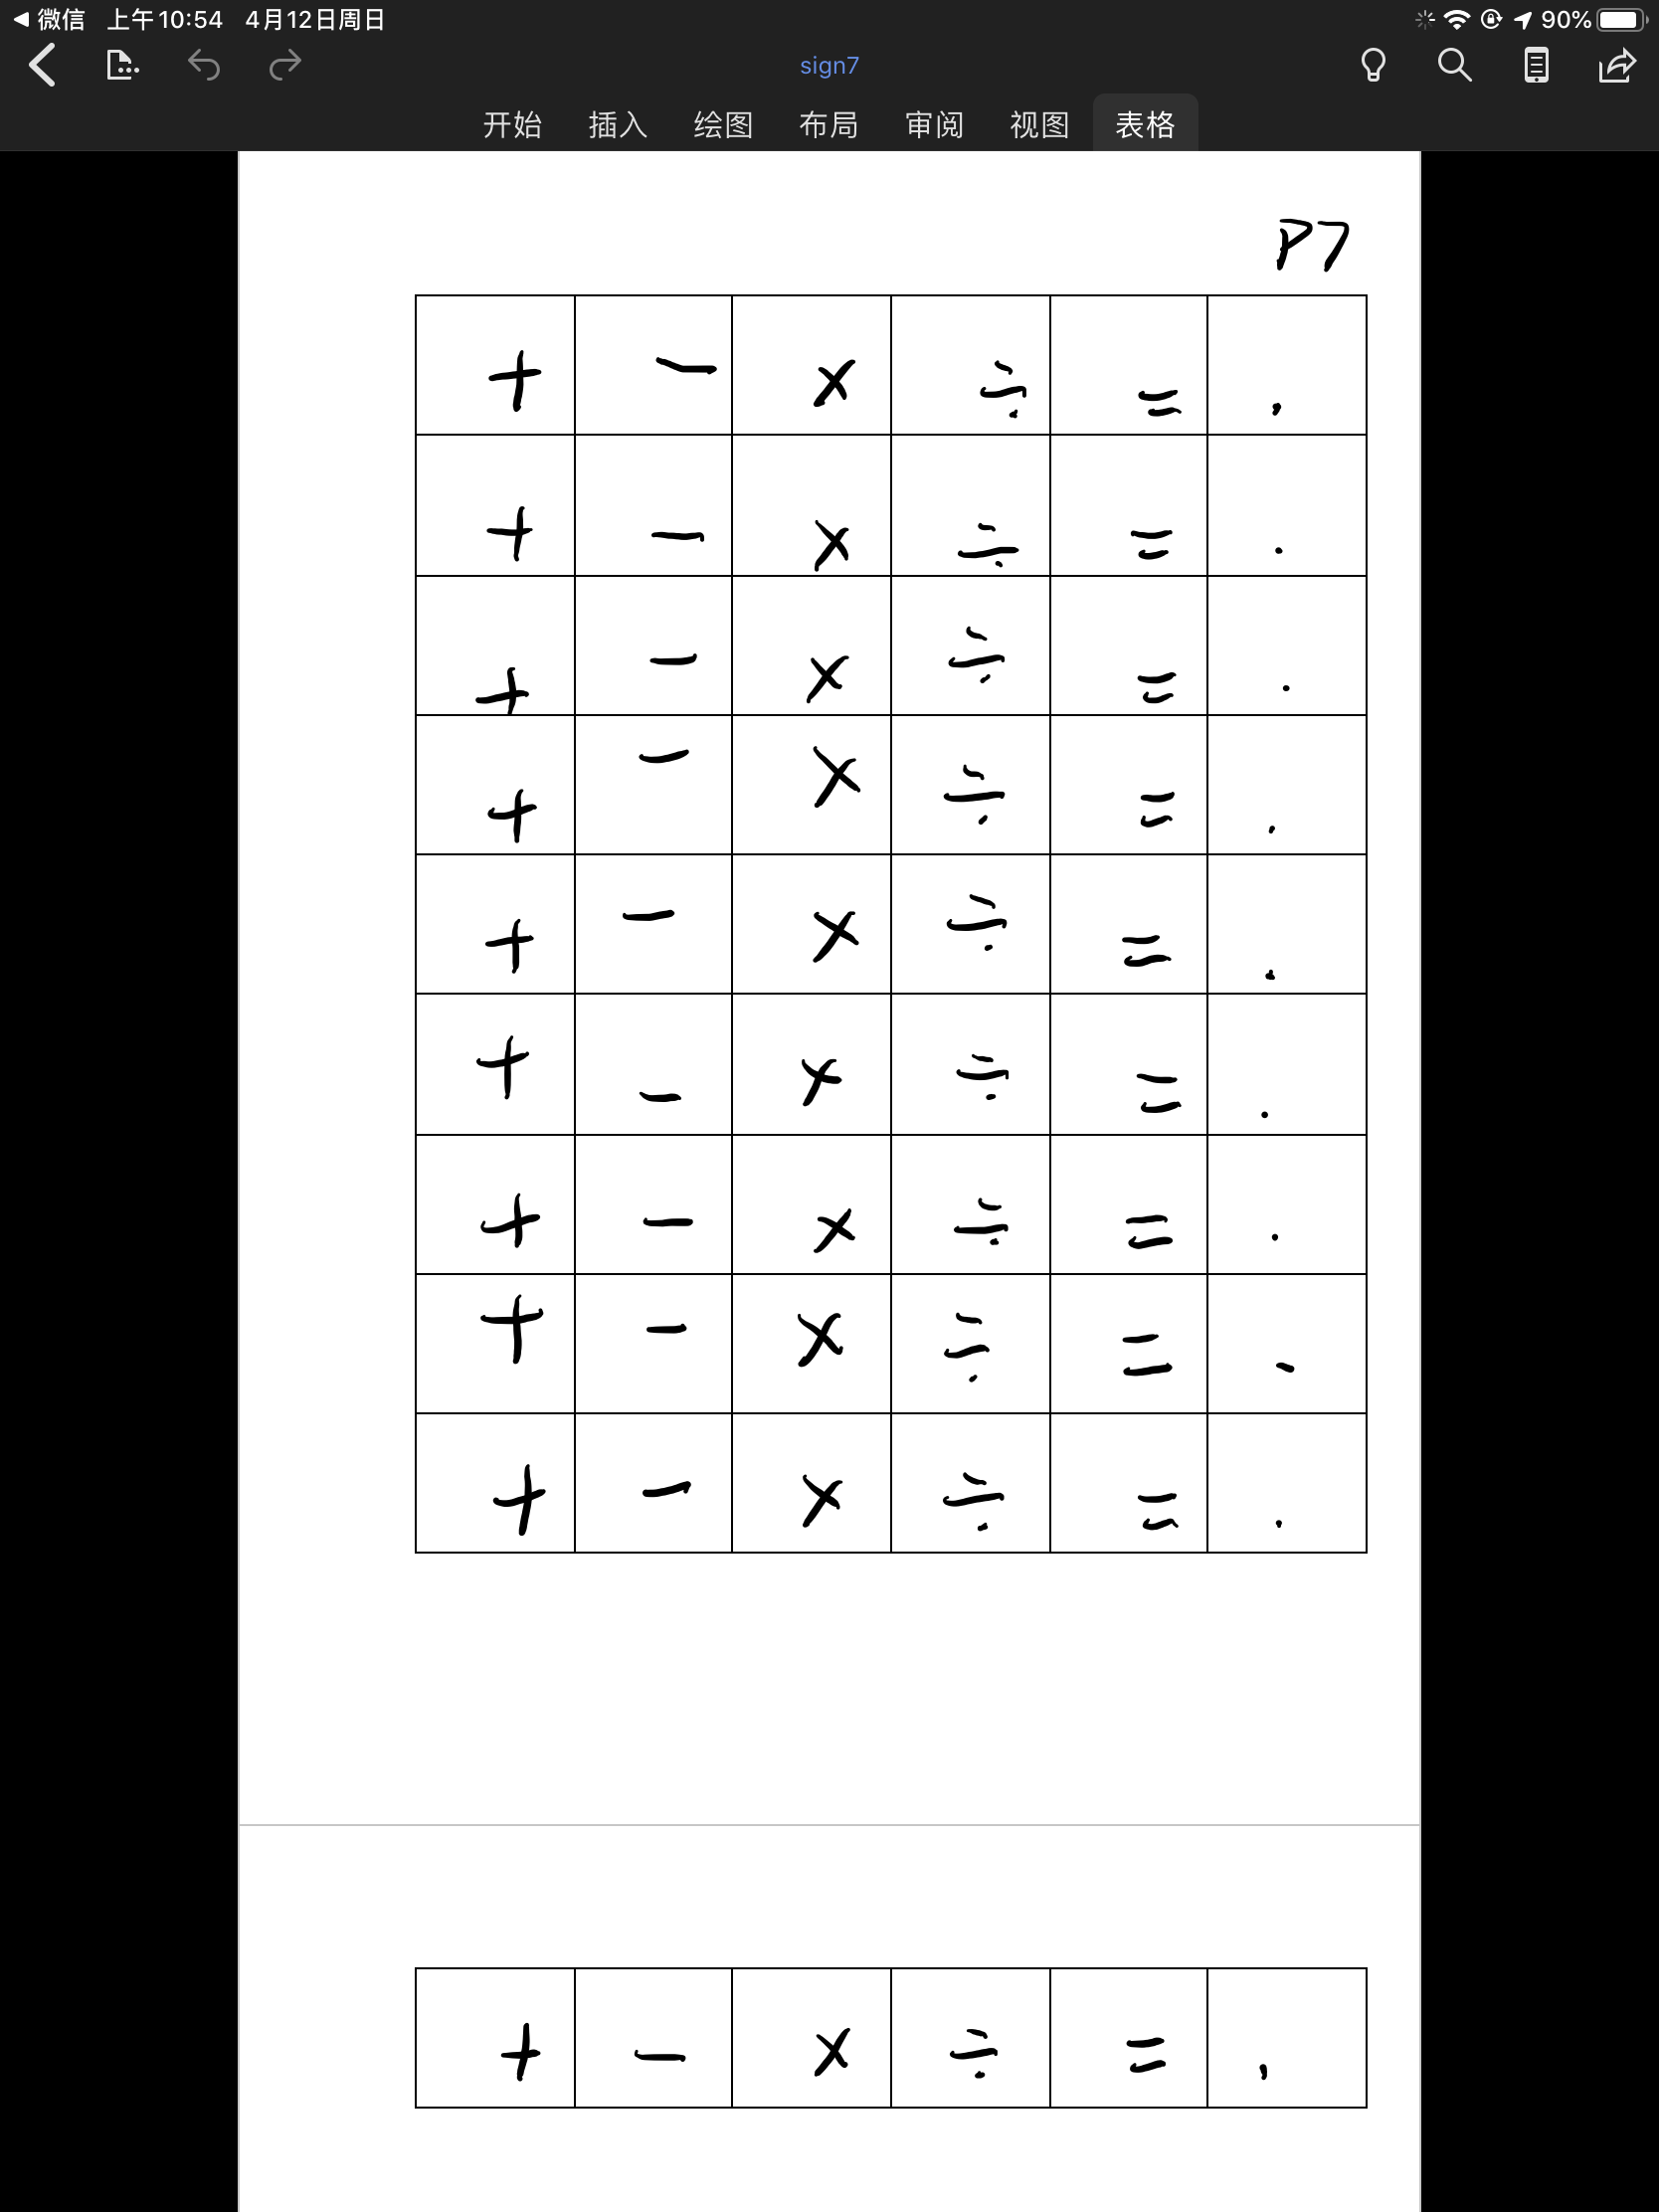 微信 上午10:54 4月12日周日 90%
sign7
开始 插入 绘图 布局 审阅 视图 表格
P7
+ − × ÷ = .
+ − × ÷ = .
+ − × ÷ = .
+ − × ÷ = .
+ − × ÷ = .
+ − × ÷ = .
+ − × ÷ = .
+ − × ÷ = .
+ − × ÷ = .
+ − × ÷ = .